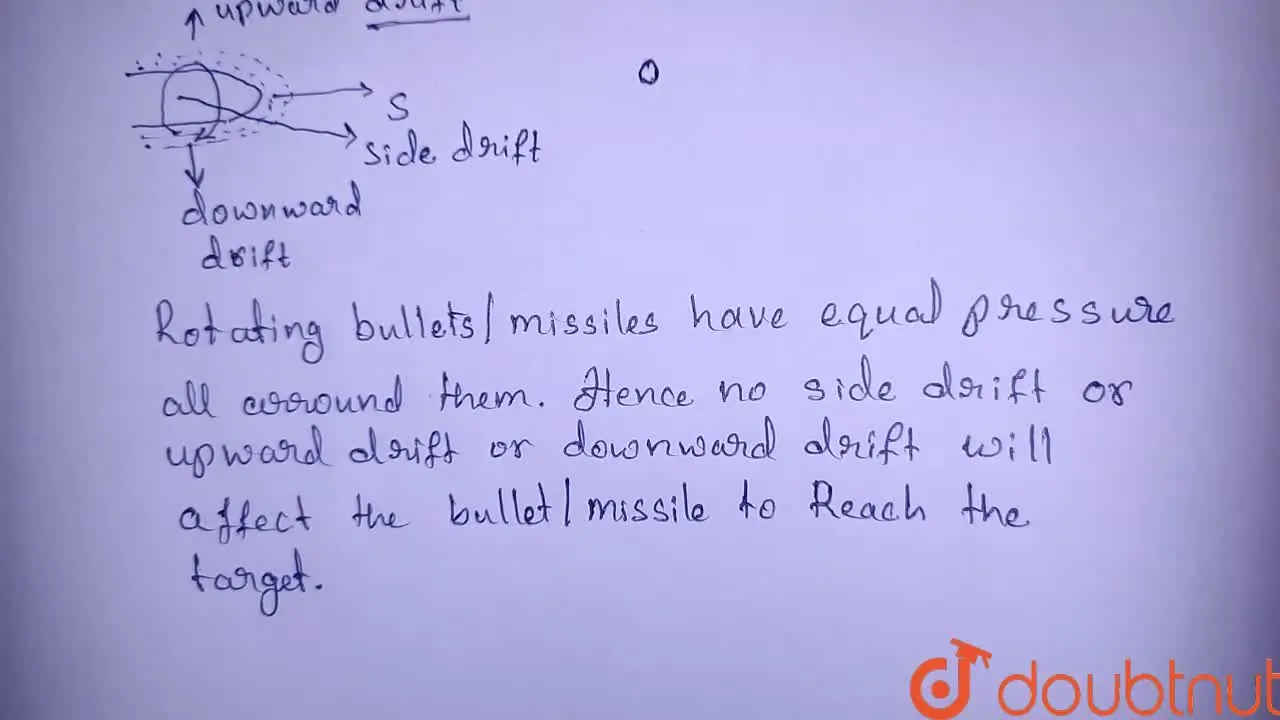 upward drift
S
side drift
downward
drift
Rotating bullets/missiles have equal pressure
all arround them. Hence no side drift or
upward drift or downward drift will
affect the bullet/missile to Reach the
target.
doubtnut